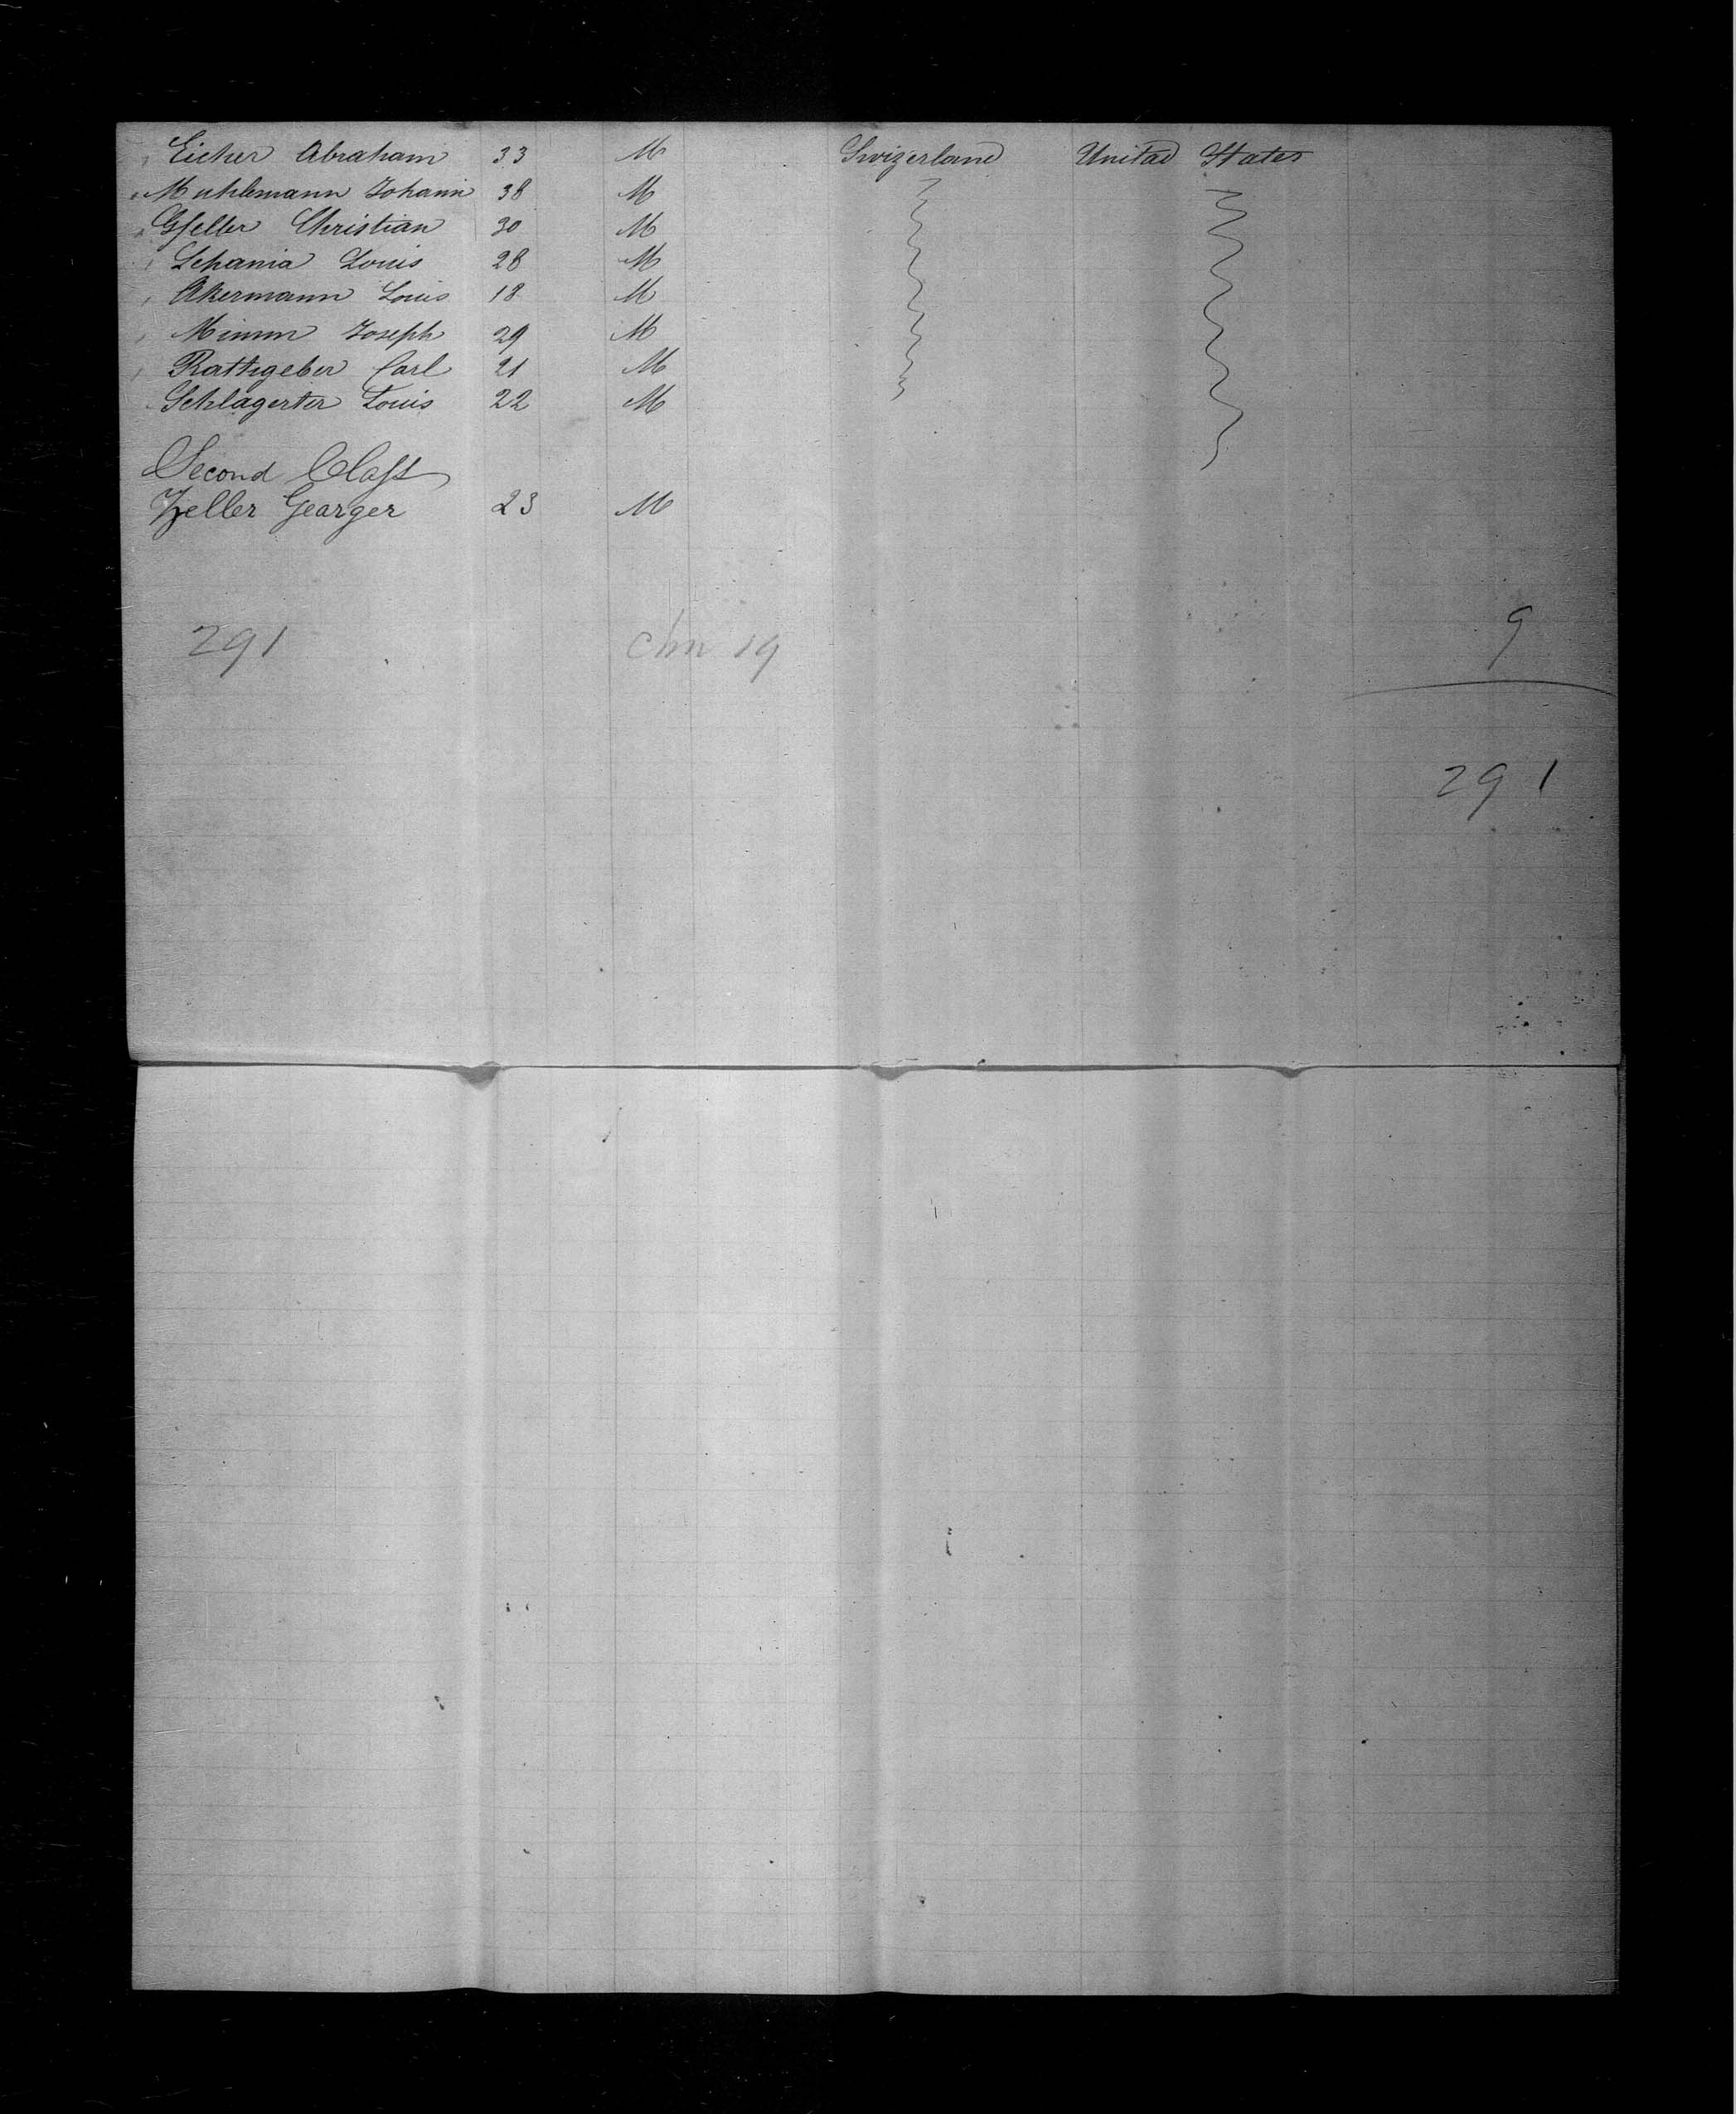 Eicher Abraham 33 M Swizerland Unitad States
Muhlemann Johann 38 M
Gfeller Christian 30 M
Schania Louis 28 M
Akermann Louis 18 M
Mimm Joseph 29 M
Rathgeber Carl 21 M
Schlagerter Louis 22 M
Second Class
Zeller Gearger 23 M
9
291 chn 19
291